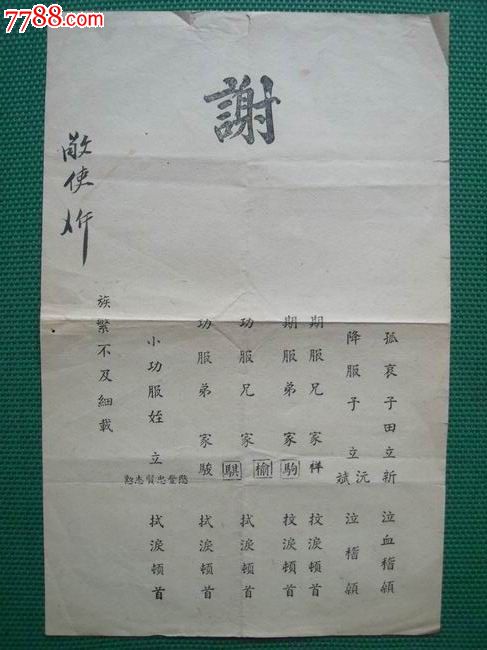 7788.com
謝
孤哀子田立新 泣血稽顙
降服子立沅斌 泣稽顙
期服兄家祥 抆淚頓首
期服弟家駒 抆淚頓首
功服兄家榆騏 拭淚頓首
功服弟家駿 拭淚頓首
小功服姪立 拭淚頓首
族繁不及細載
敬使